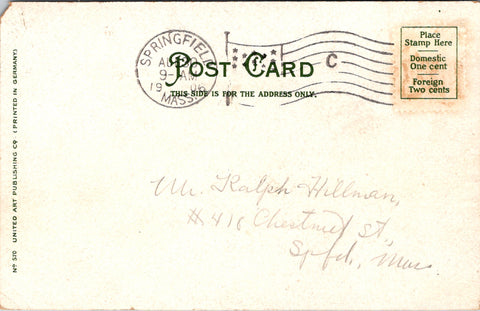 SPRINGFIELD
AU
9-AM
19 06
MASS.
C
POST CARD
THIS SIDE IS FOR THE ADDRESS ONLY.
Place
Stamp Here
Domestic
One cent
Foreign
Two cents
Nº 510 UNITED ART PUBLISHING CO (PRINTED IN GERMANY)
Mr. Ralph Hillman,
#410 Chestnut St.,
Spfd., Mass.